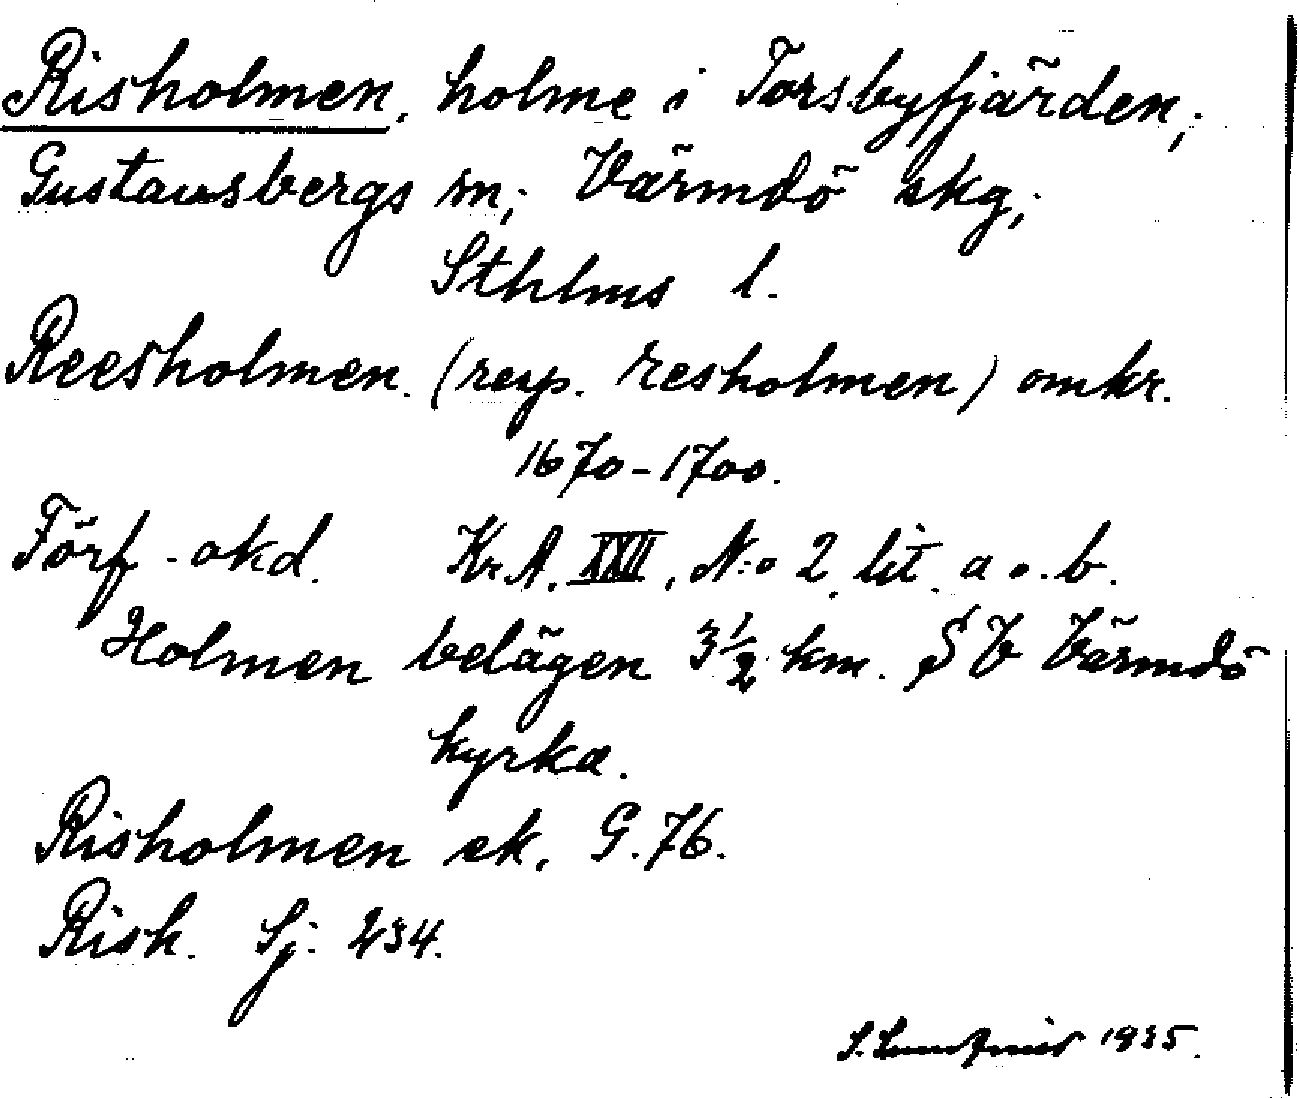 Risholmen, holme i Torsbyfjärden;
Gustavsbergs sn; Värmdö skg;
Sthlms l.
Reesholmen. (resp. resholmen) omkr.
1670-1700.
Förf. okd. Kr.A. XXII, N:o 2 lit. a o. b.
Holmen belägen 3 1/2 km. SV Värmdö
kyrka.
Risholmen ek. G.76.
Rish. Sj. 234.
S. 1935.